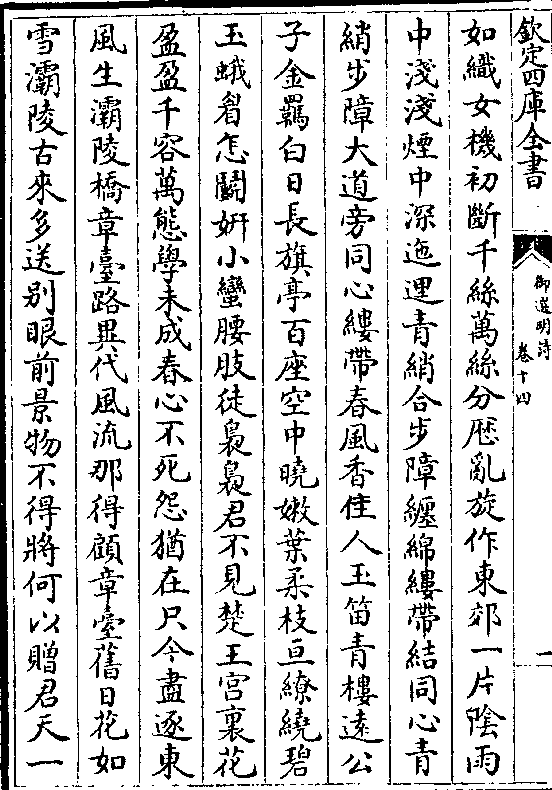 欽定四庫全書
御選明詩
卷十四
一
如織女機初斷千絲萬絲分歴亂旋作東郊一片陰雨
中淺淺煙中深迤邐青綃合步障纏綿縷帶結同心青
綃步障大道旁同心縷帶春風香佳人玉笛青樓遠公
子金羈白日長旗亭百座空中曉嫩葉柔枝亘繚繞碧
玉蛾眉怎鬭妍小蠻腰肢徒裊裊君不見楚王宫裏花
盈盈千容萬態學未成春心不死怨猶在只今盡逐東
風生灞陵橋章臺路異代風流那得顧章臺舊日花如
雪灞陵古來多送别眼前景物不得將何以贈君天一